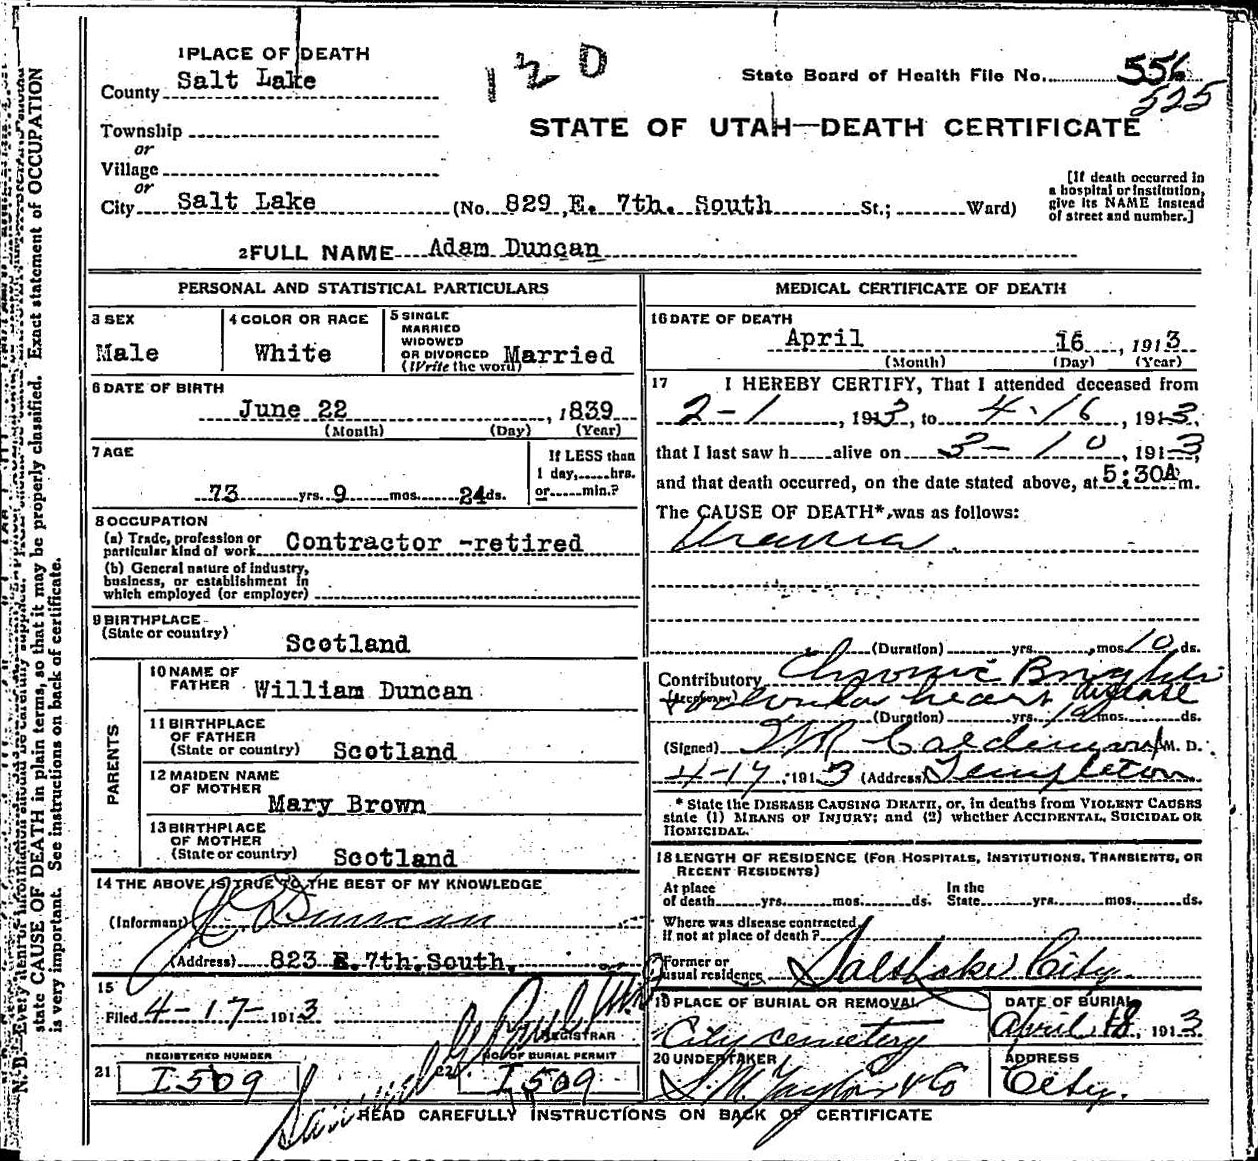 1 PLACE OF DEATH
County Salt Lake
Township
or
Village
or
City Salt Lake (No. 829 ,E. 7th. South St.; Ward)
120
State Board of Health File No. 556
525
STATE OF UTAH—DEATH CERTIFICATE
[If death occurred in
a hospital or institution,
give its NAME instead
of street and number.]
2 FULL NAME Adam Duncan
PERSONAL AND STATISTICAL PARTICULARS
3 SEX
Male
4 COLOR OR RACE
White
5 SINGLE
MARRIED
WIDOWED
OR DIVORCED
(Write the word)
Married
6 DATE OF BIRTH
June 22, 1839
(Month) (Day) (Year)
7 AGE
73 yrs. 9 mos. 24 ds.
If LESS than
1 day,.....hrs.
or.....min.?
8 OCCUPATION
(a) Trade, profession or
particular kind of work Contractor -retired
(b) General nature of industry,
business, or establishment in
which employed (or employer)
9 BIRTHPLACE
(State or country)
Scotland
PARENTS
10 NAME OF
FATHER William Duncan
11 BIRTHPLACE
OF FATHER
(State or country) Scotland
12 MAIDEN NAME
OF MOTHER
Mary Brown
13 BIRTHPLACE
OF MOTHER
(State or country) Scotland
14 THE ABOVE IS TRUE TO THE BEST OF MY KNOWLEDGE
(Informant) Duncan
(Address) 823 E. 7th. South.
15
Filed 4-17- 1913
REGISTRAR
21
REGISTERED NUMBER
I509
NO. OF BURIAL PERMIT
I509
MEDICAL CERTIFICATE OF DEATH
16 DATE OF DEATH
April 16, 1913
(Month) (Day) (Year)
17 I HEREBY CERTIFY, That I attended deceased from
2-1, 1913, to 4-16, 1913,
that I last saw h alive on 3-10, 1913,
and that death occurred, on the date stated above, at 5:30A m.
The CAUSE OF DEATH*, was as follows:
Uremia
(Duration) yrs. mos. 10 ds.
Contributory Chronic Brights
heart disease
(Duration) yrs. mos. ds.
(Signed) M. D.
4-17, 1913 (Address) Templeton
* State the DISEASE CAUSING DEATH, or, in deaths from VIOLENT CAUSES
state (1) MEANS OF INJURY; and (2) whether ACCIDENTAL, SUICIDAL OR
HOMICIDAL.
18 LENGTH OF RESIDENCE (FOR HOSPITALS, INSTITUTIONS, TRANSIENTS, OR
RECENT RESIDENTS)
At place
of death yrs. mos. ds.
In the
State yrs. mos. ds.
Where was disease contracted,
if not at place of death?
Former or
usual residence Salt Lake City.
19 PLACE OF BURIAL OR REMOVAL
City cemetery
DATE OF BURIAL
April 18, 1913
20 UNDERTAKER
S. M. Taylor & Co
ADDRESS
City.
READ CAREFULLY INSTRUCTIONS ON BACK OF CERTIFICATE
state CAUSE OF DEATH in plain terms, so that it may be properly classified. Exact statement of OCCUPATION
is very important. See instructions on back of certificate.